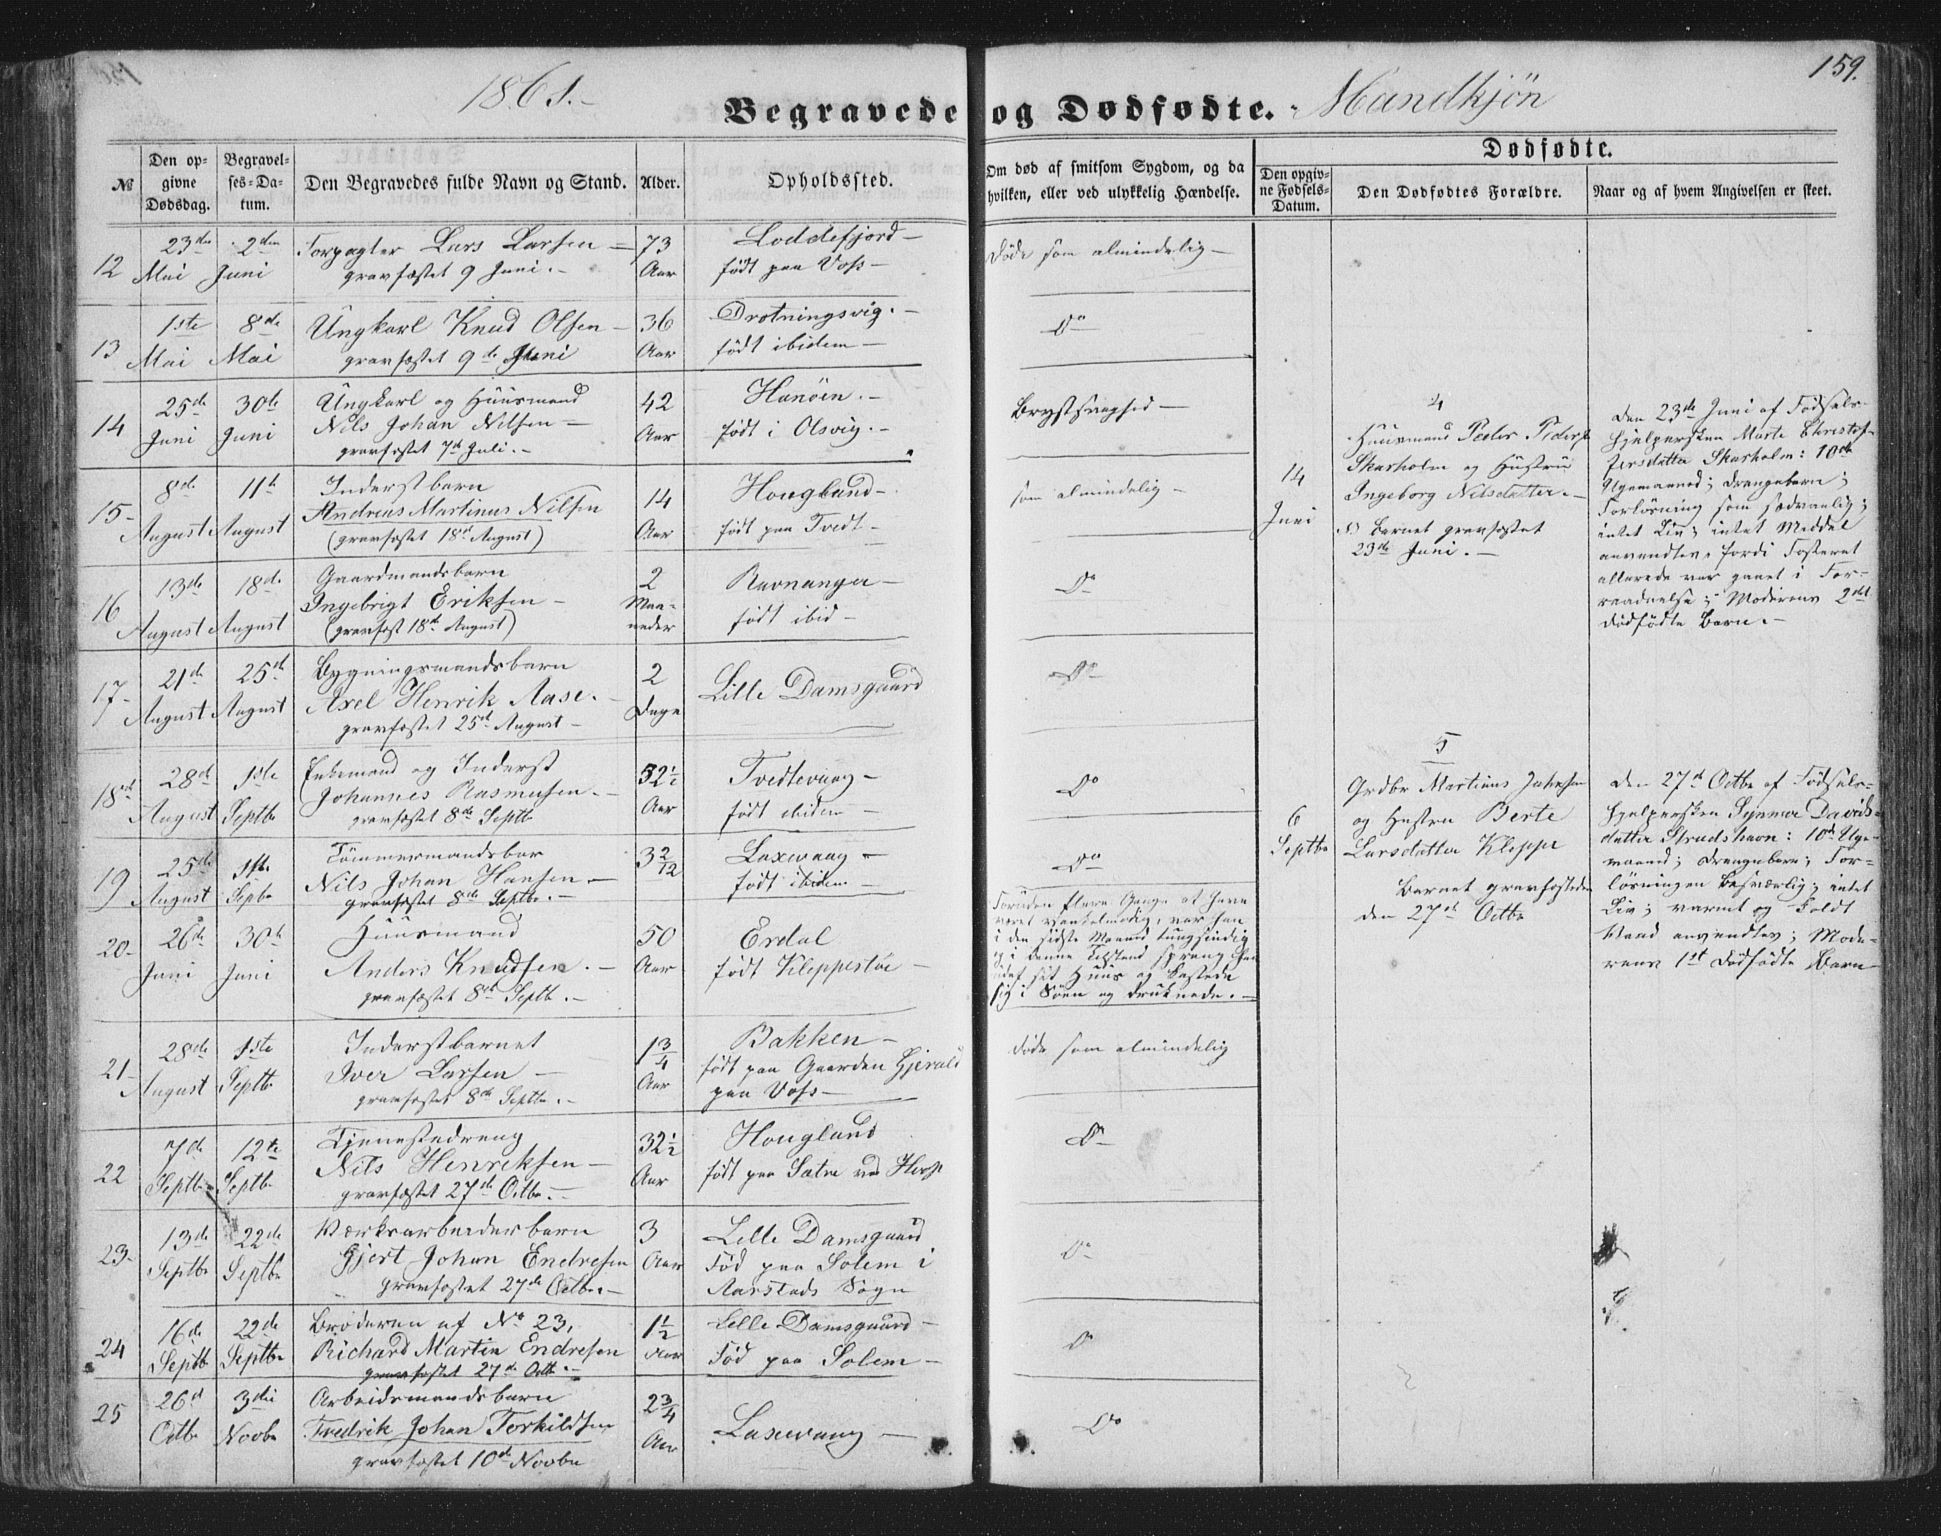 1861.-
Begravede og Dødfødte. Mandkjön
159.
№
Den opgivne Dødsdag.
Begravelses-Datum.
Den Begravedes fulde Navn og Stand.
Alder.
Opholdssted.
Om død af smitsom Sygdom, og da hvilken, eller ved ulykkelig Hændelse.
Dødfødte.
Den opgivne Fødsels-Datum.
Den Dødfødtes Forældre.
Naar og af hvem Angivelsen er skeet.
12 23de Mai 2den Juni
Forpagter Lars Larsen
gravfæstet 9 Juni.
73 Aar
Loddefjord
født paa Voss
Døde som almindelig
13 1ste Mai 8de Mai
Ungkarl Knud Olsen
gravfæstet 9de Juni
36 Aar
Drotningsvig.
født ibidem
Do
14 25de Juni 30te Juni
Ungkarl og Huusmand
Nils Johan Nilsen
gravfæstet 7de Juli.
42 Aar
Hanöen.
født i Olsvig.
Brystsvaghed
15 8de August 11te August
Inderstbarn
Andreas Martinus Nilsen
(gravfæstet 18de August)
14 Aar
Houglund
født paa Tvedt
som almindelig
16 13de August 18de August
Gaardmandsbarn
Ingebrigt Eriksen
(gravfæst 18de August)
2 Maaneder
Ravnanger
født ibid
Do
17 21de August 25de August
Bygningsmandsbarn
Axel Henrik Aase.
gravfæstet 25de August
2 Dage
Lille Damsgaard
Do
18 28de August 1ste Septbr
Enkemand og Inderst
Johannes Rasmusen.
gravfæstet 8de Septbr
52½ Aar
Tvedtevaag
født ibidem
Do
19 25de August 1ste Septbr
Tömmermandsbar
Nils Johan Hansen
gravfæstet 8de Septbr.
3 2/12
Laxevaag
født ibidem
Do
20 26de Juni 30te Juni
Huusmand
Anders Knudsen.
gravfæstet 8de Septb.
50 Aar
Erdal
født Kleppestøe
Foruden flere Gange at have
været vankelmodig, var han
i den sidste Maaned tungsindig
og i denne Tilstand sprang han
udaf sit Huus og kastede
sig i Söen og druknede.
21 28de August 1ste Septbr
Inderstbarnet
Iver Larsen
gravfæstet 8de Septbr.
1¾ Aar
Bakken
født paa Gaarden Gjerald
paa Voss
Døde som almindelig
22 7de Septbr 12te Septbr
Tjenestedreng
Nils Henriksen
gravfæstet 27de Octbr.
32½ Aar
Houglund
født paa Sætre
Do
23 13de Septbr 22de Septbr
Værksarbeiderbarn
Gjert Johan Endresen
gravfæstet 27de Octbr.
3 Aar
Lille Damsgaard
Född paa Solem i
Aarstads Sogn
Do
24 16de Septbr 22de Septbr
Broderen af No 23,
Richard Martin Endresen
gravfæstet 27de Octb.
1½ Aar
Lille Damsgaard
Föd paa Solem
Do
25 26de Octbr 3die Novbr
Arbeidsmandsbarn
Fredrik Johan Torkildsen
gravfæstet 10de Novbr
2¾ Aar
Laxevaag
Do
4
14 Juni
Huusmand Peder Peders
Skarholm og Hustru
Ingeborg Nilsdatter.
Barnet gravfæstet
23de Juni.
Den 23de Juni af Fødsels-
hjelpersken Marte Christof-
fersdatter Skarholm: 10de
Ugemaaned; Drengebarn;
Forlösning som sædvanlig;
intet Liv; intet Middel
anvendtes, fordi Fosteret
allerede var gaaet i For-
raadnelse; Moderens 2det
Dödfödte Barn.
5
6 Septbr
Grdbr Martinus Johnsen
og Hustru Berte
Larsdatter Kleppe
Barnet gravfæstedes
den 27de Octbr
Den 27de Octbr af Fødsels-
hjelpersken Synnøve Davids-
datter Strudshavn: 10de Uge-
maaned; Drengebarn; For-
lösningen besværlig; intet
Liv; varmt og koldt
Vand anvendtes; Mode-
rens 1ste Dödfödte Barn